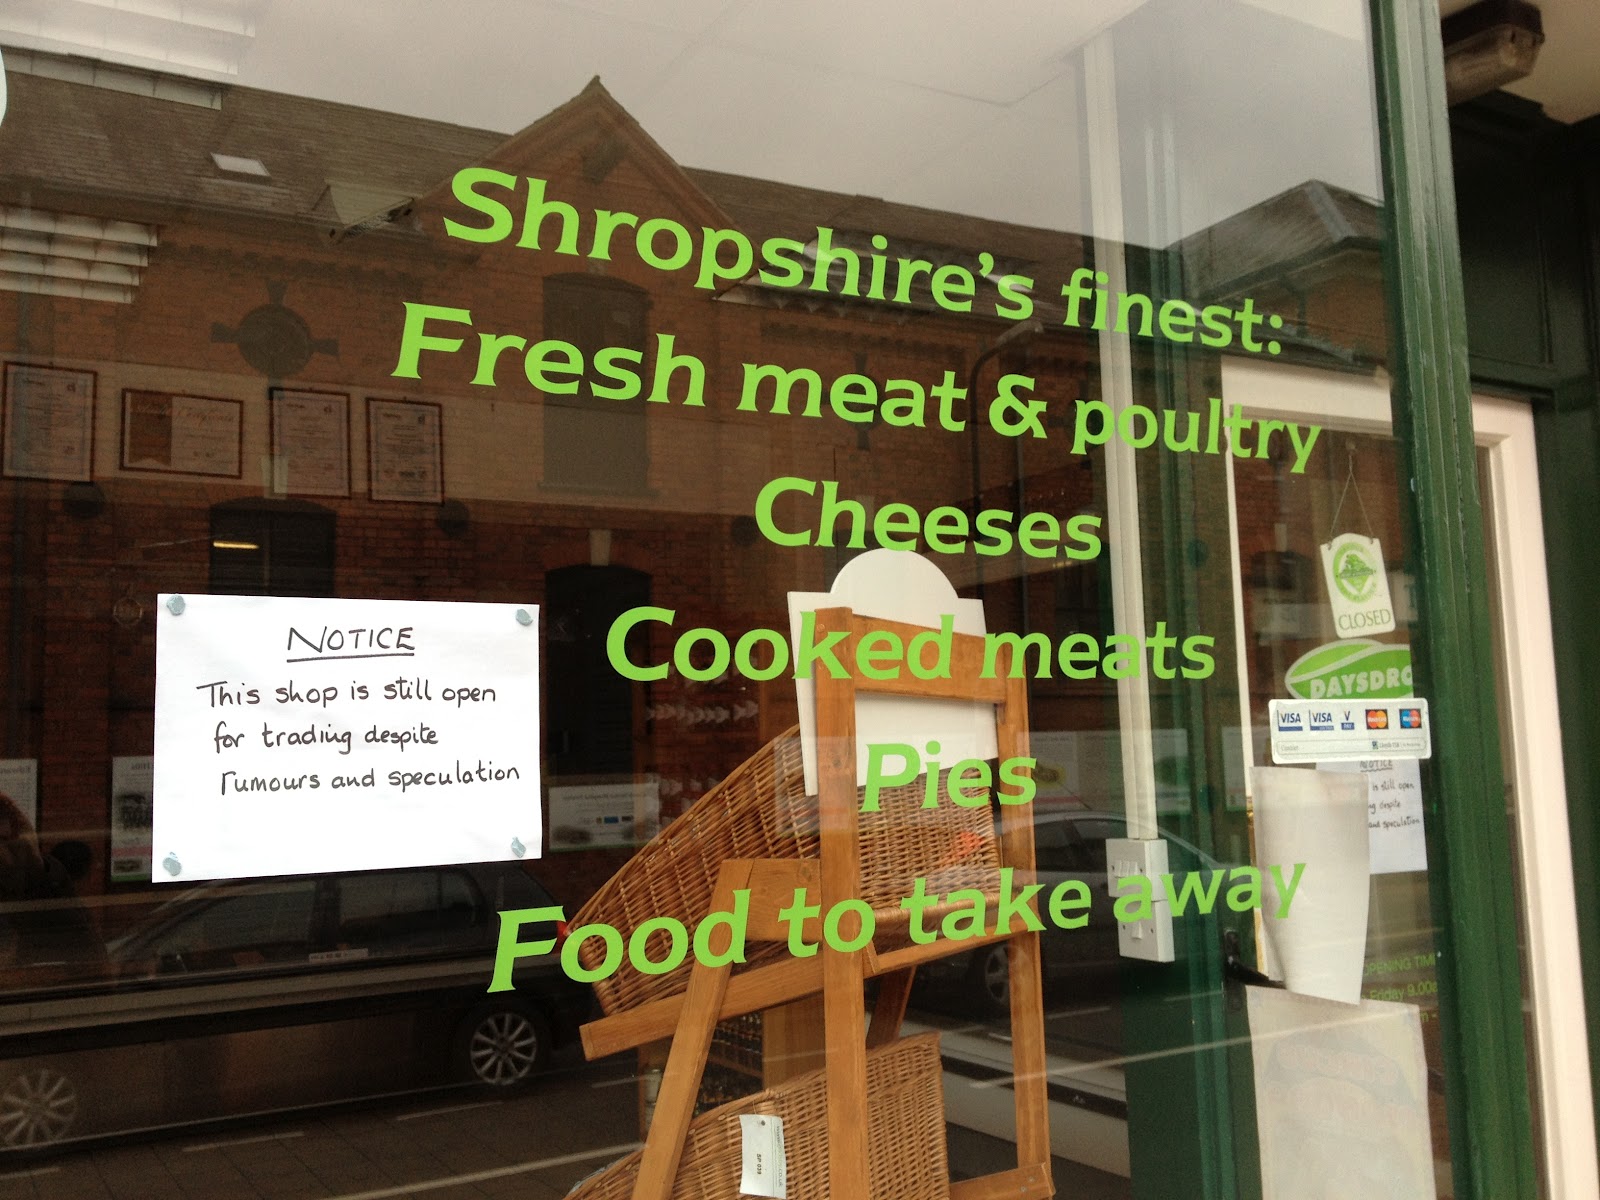 Shropshire's finest:
Fresh meat & poultry
Cheeses
Cooked meats
Pies
Food to take away
NOTICE
This shop is still open
for trading despite
rumours and speculation
CLOSED
DAYSDRO
VISA VISA V
NOTICE
is still open
despite
and speculation
OPENING TIM
Friday 9.00a
SP 039